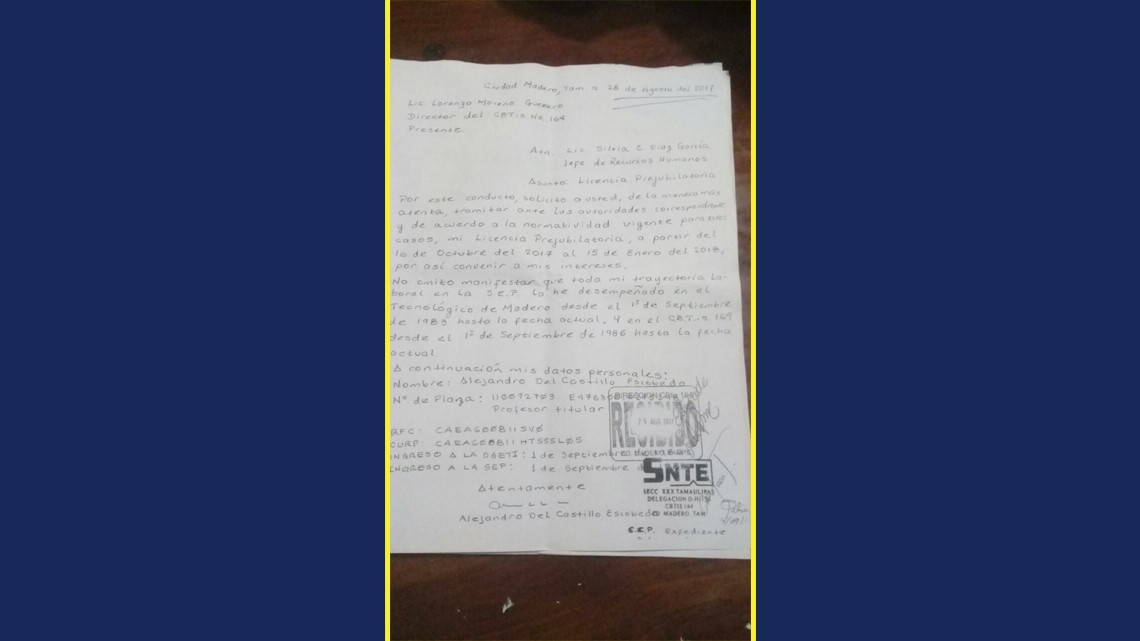 Ciudad Madero, Tam a 28 de agosto del 2017
Lic. Lorenzo Moreno Guerrero
Director del CBTis No. 164
Presente.
Atn. Lic. Silvia C. Diaz García
Jefe de Recursos Humanos
Asunto: Licencia Prejubilatoria
Por este conducto, solicito a usted, de la manera mas
atenta, tramitar ante las autoridades correspondientes
y de acuerdo a la normatividad vigente para
casos, mi Licencia Prejubilatoria, a partir del
de Octubre del 2017 al 15 de Enero del 2018,
por así convenir a mis intereses.
No omito manifestar que toda mi trayectoria La-
boral en la S.E.P. la he desempeñado en el
Tecnológico de Madero desde el 1º de Septiembre
de hasta la fecha actual. Y en el CBTis 164
desde el 1º de Septiembre de 1986 hasta la fecha
actual.
A continuación mis datos personales:
Nombre: Alejandro Del Castillo Escobedo
Nº de Plaza:
Profesor titular
RFC:
CURP:
INGRESO A LA DGETI: 1 de Septiembre
INGRESO A LA SEP: 1 de Septiembre
RECIBIDO
SNTE
SECC XXX TAMAULIPAS
DELEGACION
CBTIS 164
CD MADERO, TAM
Atentamente
Alejandro Del Castillo Escobedo
Expediente